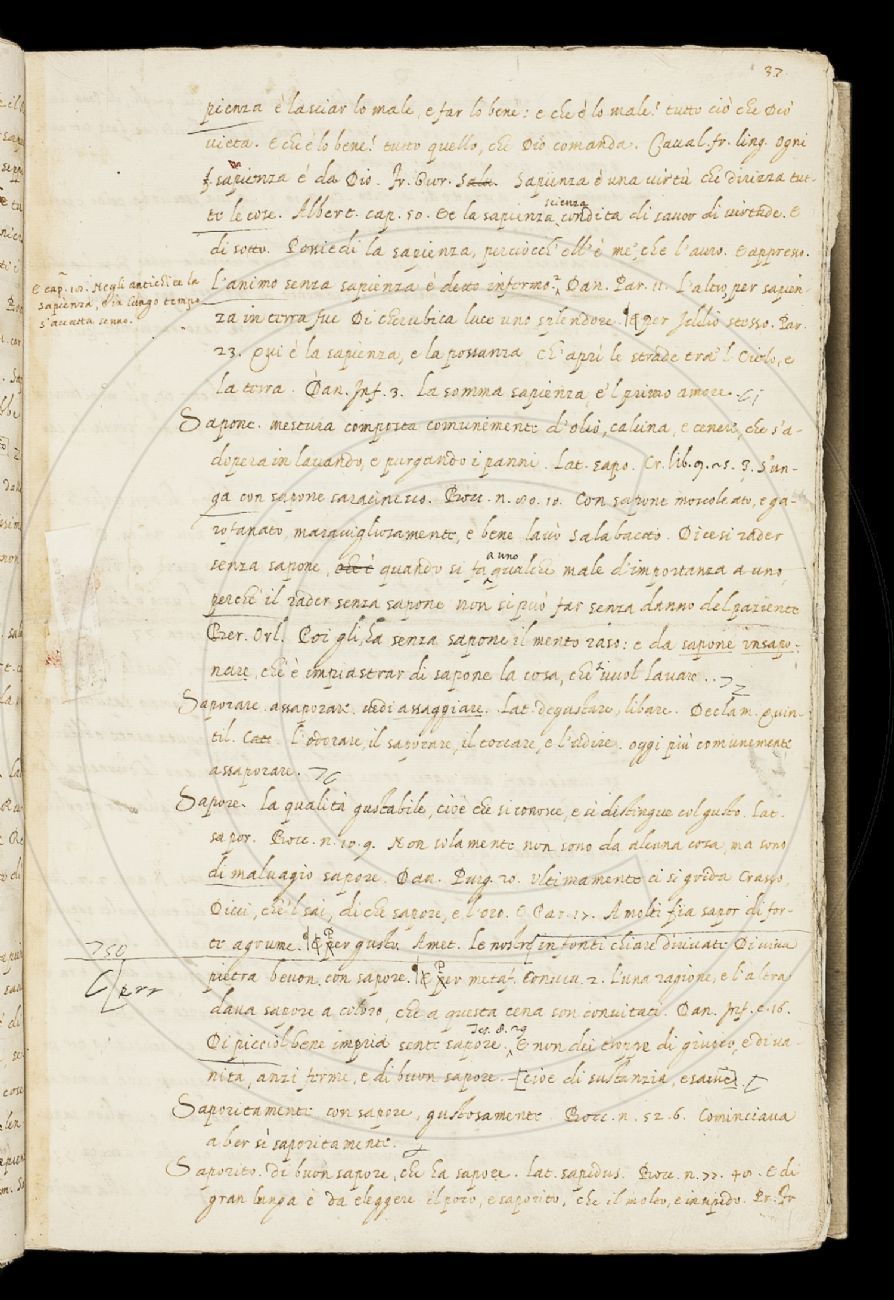 37.
pienza è lasciar lo male, e far lo bene: e che è lo male! tutto ciò che Dio
vieta. E che è lo bene! tutto quello, che Dio comanda. Caual. fr. ling. Ogni
sapienza è da Dio. Fr. Gior. Salu. Sapienza è una virtù che dirizza tut-
te le cose. Albert. cap. 50. Et la sapienza, scienza condita di savor di virtude. E
di sotto. Possiedi la sapienza, perciocch' ell' è me', che l'auro. E appresso.
E cap. Negli antichi è la
sapienza, e in lungo tempo
s'accatta senno.
L'animo senza sapienza è detto informo. Dan. Par. 11. L'altro, per sapien-
za in terra fue Di cherubica luce uno splendore. E per Iddio stesso. Par.
23. Qui è la sapienza, e la possanza Ch' aprì le strade tra 'l Cielo, e
la terra. Dan. Inf. 3. La somma sapienza e 'l primo amore.
Sapone. mestura composta comunemente d'olio, calcina, e cenere, che s'a-
dopera in lavando, e purgando i panni. Lat. sapo. Cr. lib. 9. S'un-
ga con sapone saracinesco. Bocc. n. 80. 10. Con sapone moscoleato, e ga-
rofanato, maravigliosamente, e bene lavò Salabaeto. Dicesi rader
senza sapone, quando si fa a uno qualche male d'importanza a uno,
perchè il rader senza sapone non si può far senza danno del paziente
Ber. Orl. Poi gli, ha senza sapone il mento raso: e da sapone insapo-
nare, che è impiastrar di sapone la cosa, che si vuol lavare.
Saporare. assaporare. vedi assaggiare. Lat. degustare, libare. Declam. Quin-
til. Catt. l'odorare, il saporare, il toccare, e l'udire. oggi più comunemente
assaporare.
Sapore. la qualità gustabile, cioè che si conosce, e si distingue col gusto. Lat.
sapor. Bocc. n. 10. 9. Non solamente non sono da alcuna cosa, ma sono
di malvagio sapore. Dan. Purg. 20. Ultimamente ci si grida Crasso,
Dicci, che 'l sai, di che sapore, e l'oro. E Par. 17. A molti fia sapor di for-
750
err
te agrume. E per gusto. Amet. le nostre in fonti chiare divivate Di viva
pietra bevon, con sapore. E per metaf. Conviv. 2. L'una ragione, e l'altra
dava sapore a coloro, che a questa cena son convitati. Dan. Purg. c. 16.
Di picciol bene impria sente sapore. E non dei essere di giunco, e di va-
nità, anzi ferme, e di buon sapore. cioè di sustanzia, e
Saporitamente con sapore, gustosamente. Bocc. n. 52. 6. Cominciava
a ber sì saporitamente.
Saporito. di buon sapore, che ha sapore. Lat. sapidus. Bocc. n. 77. 40. E di
gran lunga è da eleggere il poco, e saporito, che il molto, e insipido.